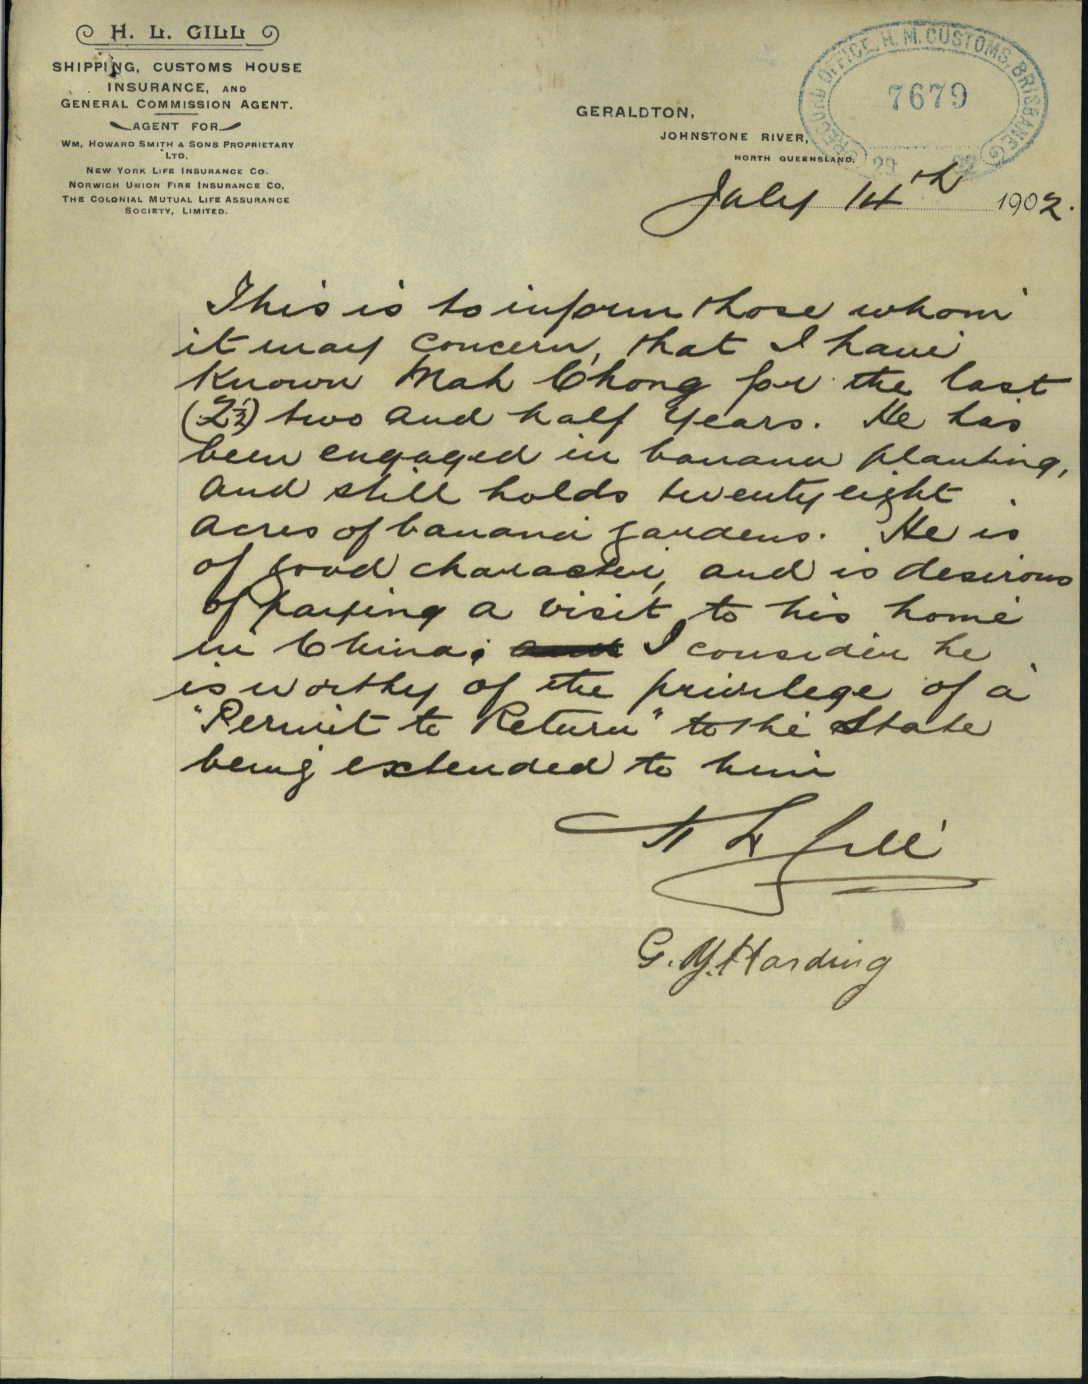 H. L. GILL
SHIPPING, CUSTOMS HOUSE
INSURANCE, AND
GENERAL COMMISSION AGENT.
AGENT FOR
WM. HOWARD SMITH & SONS PROPRIETARY
LTD.
NEW YORK LIFE INSURANCE CO.
NORWICH UNION FIRE INSURANCE CO.
THE COLONIAL MUTUAL LIFE ASSURANCE
SOCIETY, LIMITED.
RECORD OFFICE, H. M. CUSTOMS, BRISBANE
7679
GERALDTON,
JOHNSTONE RIVER,
NORTH QUEENSLAND,
July 14th 1902.
This is to inform those whom
it may concern, that I have
known Mah Chong for the last
(2½) two and half years. He has
been engaged in banana planting,
and still holds twenty eight
acres of banana gardens. He is
of good character, and is desirous
of paying a visit to his home
in China; and I consider he
is worthy of the privilege of a
"Permit to Return" to the State
being extended to him
H L Gill
G. Y. Harding